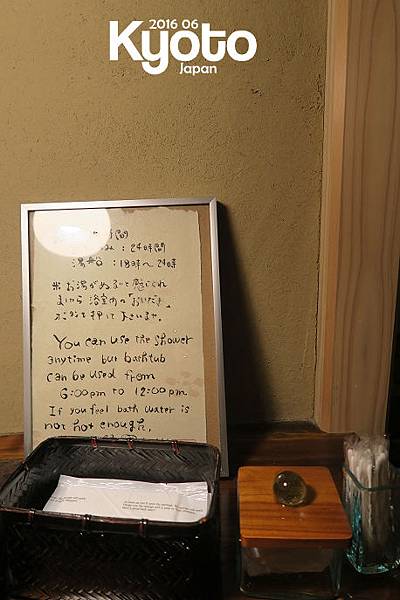 2016 06
Kyoto
Japan
時間
: 24時間
湯船 : 18時〜24時
※お湯がぬるいと感じられ
ましたら 浴室内の"おいだき"
ボタンを押して下さいませ。
You can use the shower
anytime but bathtub
can be used from
6:00pm to 12:00pm
If you feel bath water is
not hot enough,